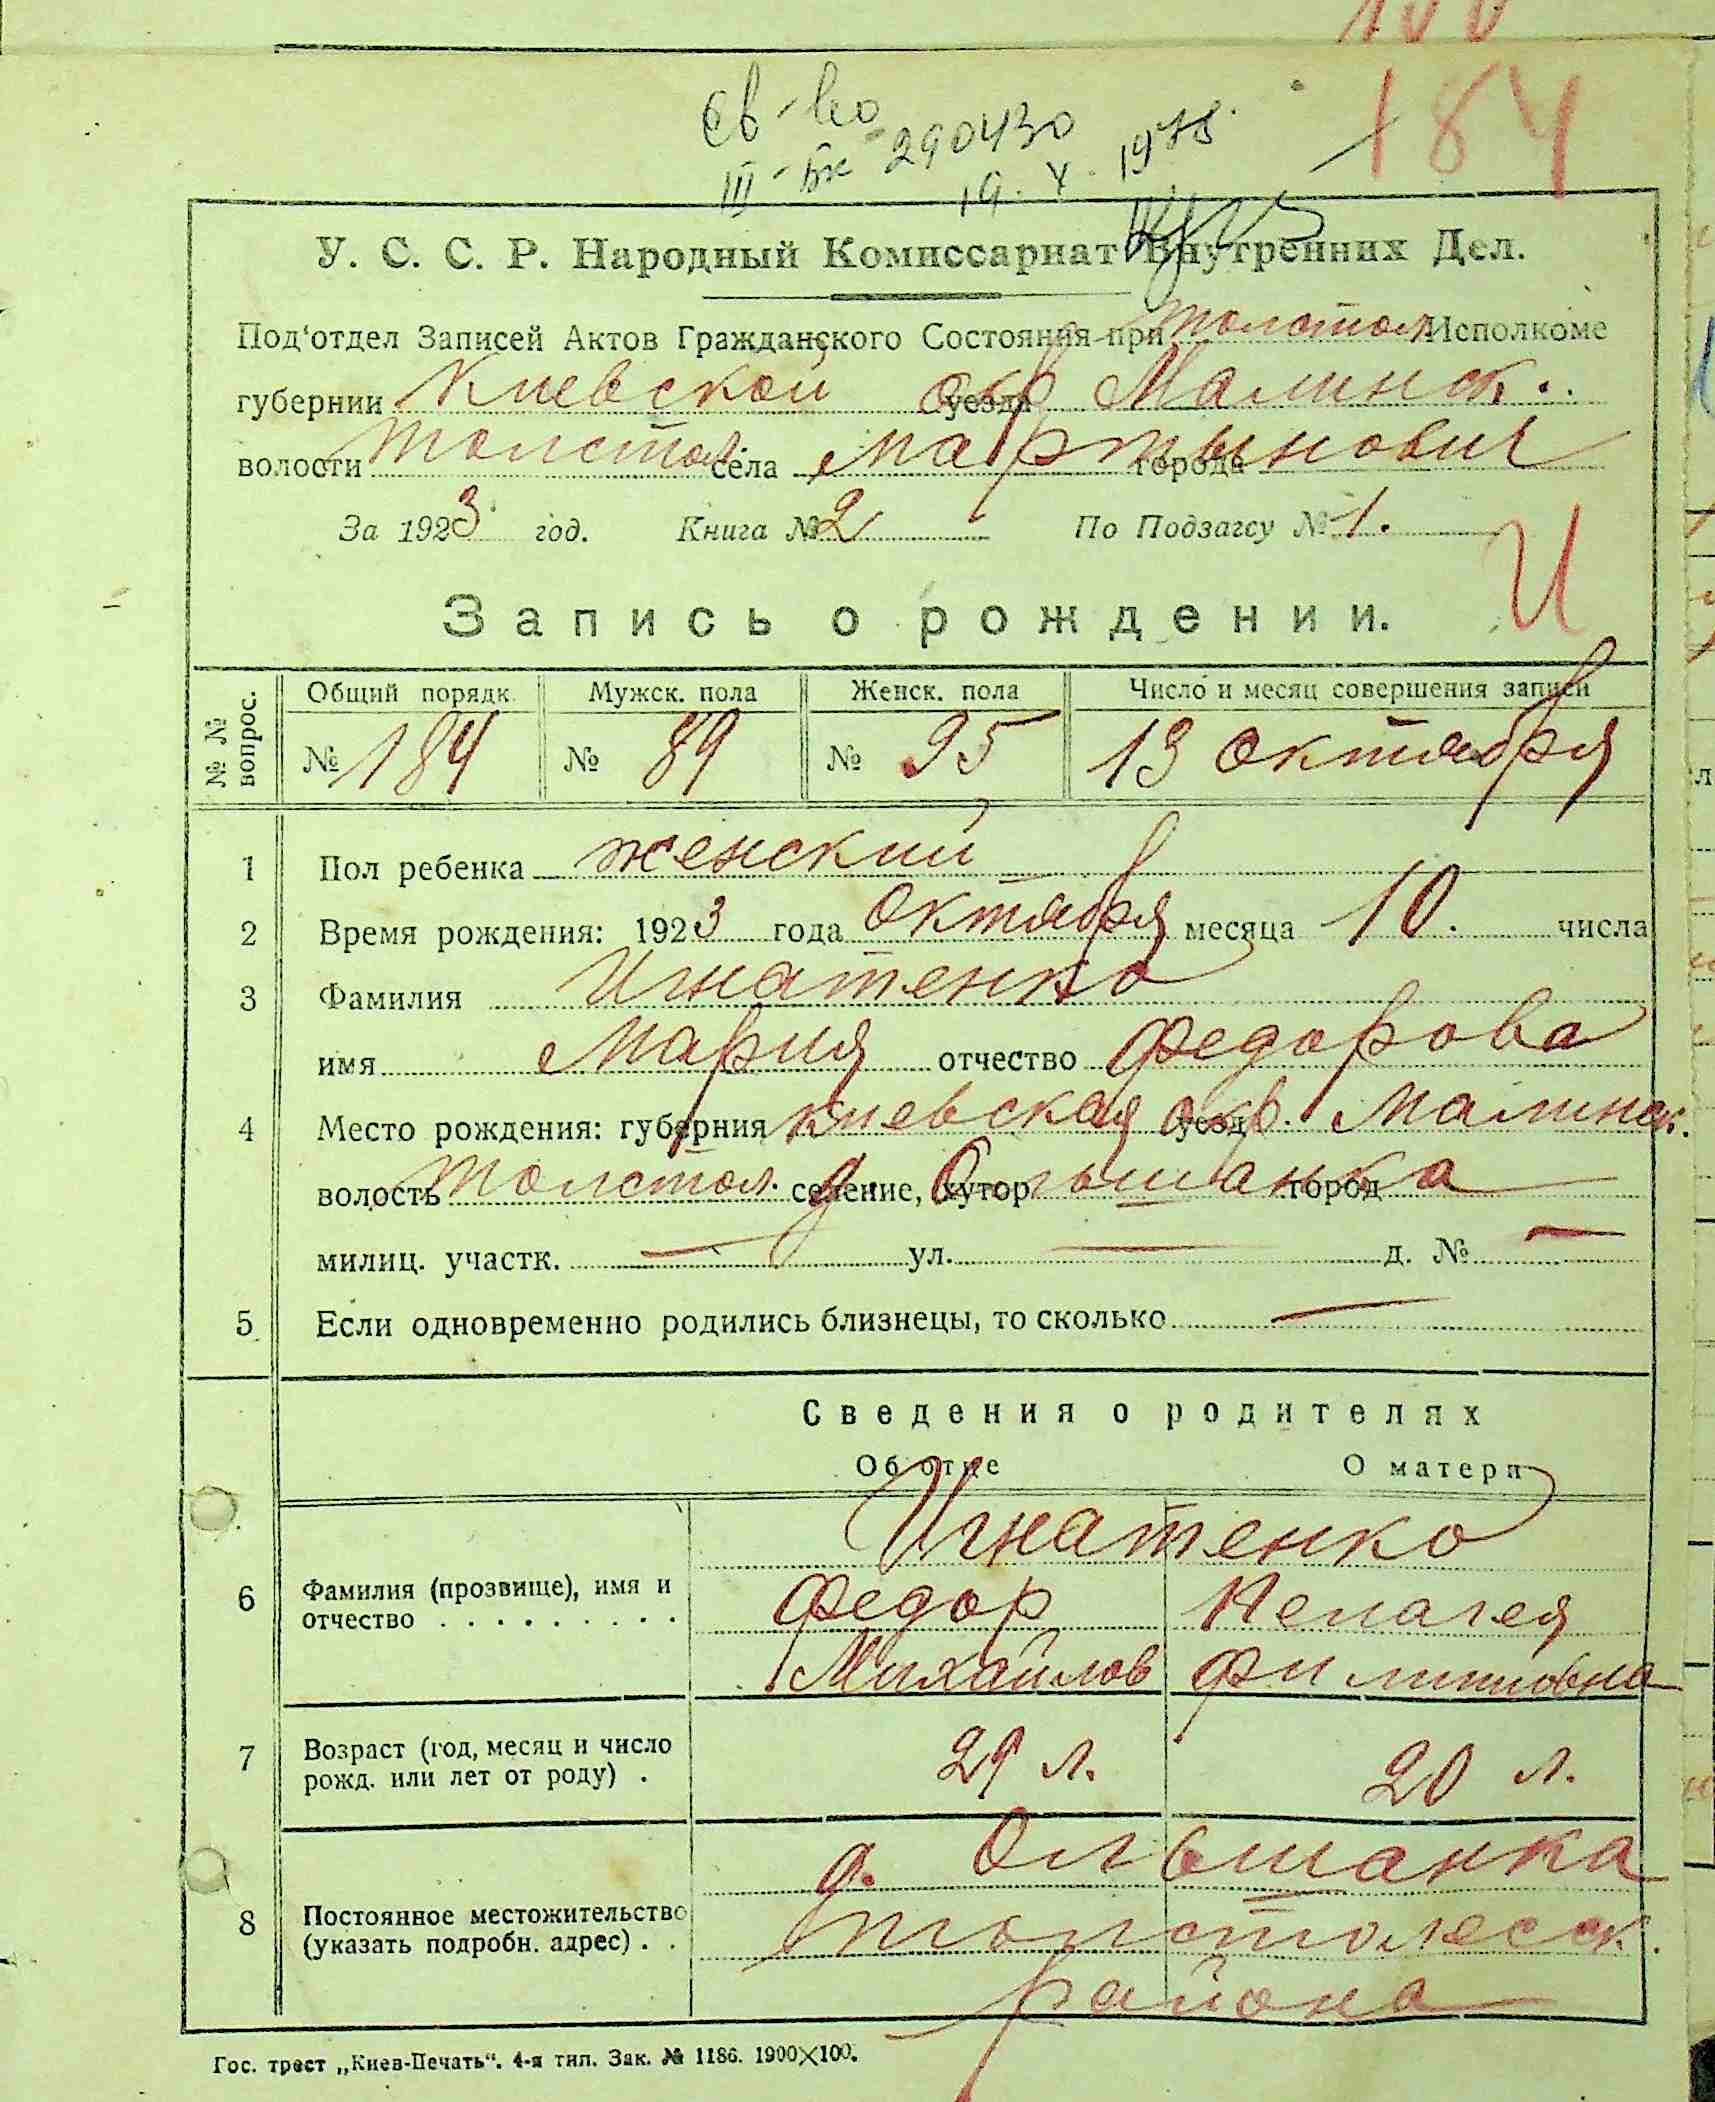 184
Св-во
III-БК 290430
19. X. 1973.
У. С. С. Р. Народный Комиссариат Внутренних Дел.
Под'отдел Записей Актов Гражданского Состояния при Толстол Исполкоме
губернии Киевской уезда окр Малинск.
волости Толстол. села Мартынович города
За 1923 год. Книга № 2 По Подзагсу № 1.
И
Запись о рождении.
№ № вопрос. Общий порядк. Мужск. пола Женск. пола Число и месяц совершения записи
№ 184 № 89 № 95 13 октября
1 Пол ребенка женский
2 Время рождения: 1923 года октября месяца 10. числа
3 Фамилия Игнатенко
имя Мария отчество Федорова
4 Место рождения: губерния Киевская уезд окр. Малинск.
волость Толстол. селение, хутор д. Ольшанка город
милиц. участк. — ул. — д. № —
5 Если одновременно родились близнецы, то сколько —
Сведения о родителях
Об отце О матери
Игнатенко
6 Фамилия (прозвище), имя и Федор Пелагея
отчество . . . . . . . . . Михайлов Филиповна
7 Возраст (год, месяц и число 29 л. 20 л.
рожд. или лет от роду) .
д. Ольшанка
8 Постоянное местожительство Толстолесск.
(указать подробн. адрес) . . района
Гос. трест „Киев-Печать“. 4-я тип. Зак. № 1186. 1900×100.